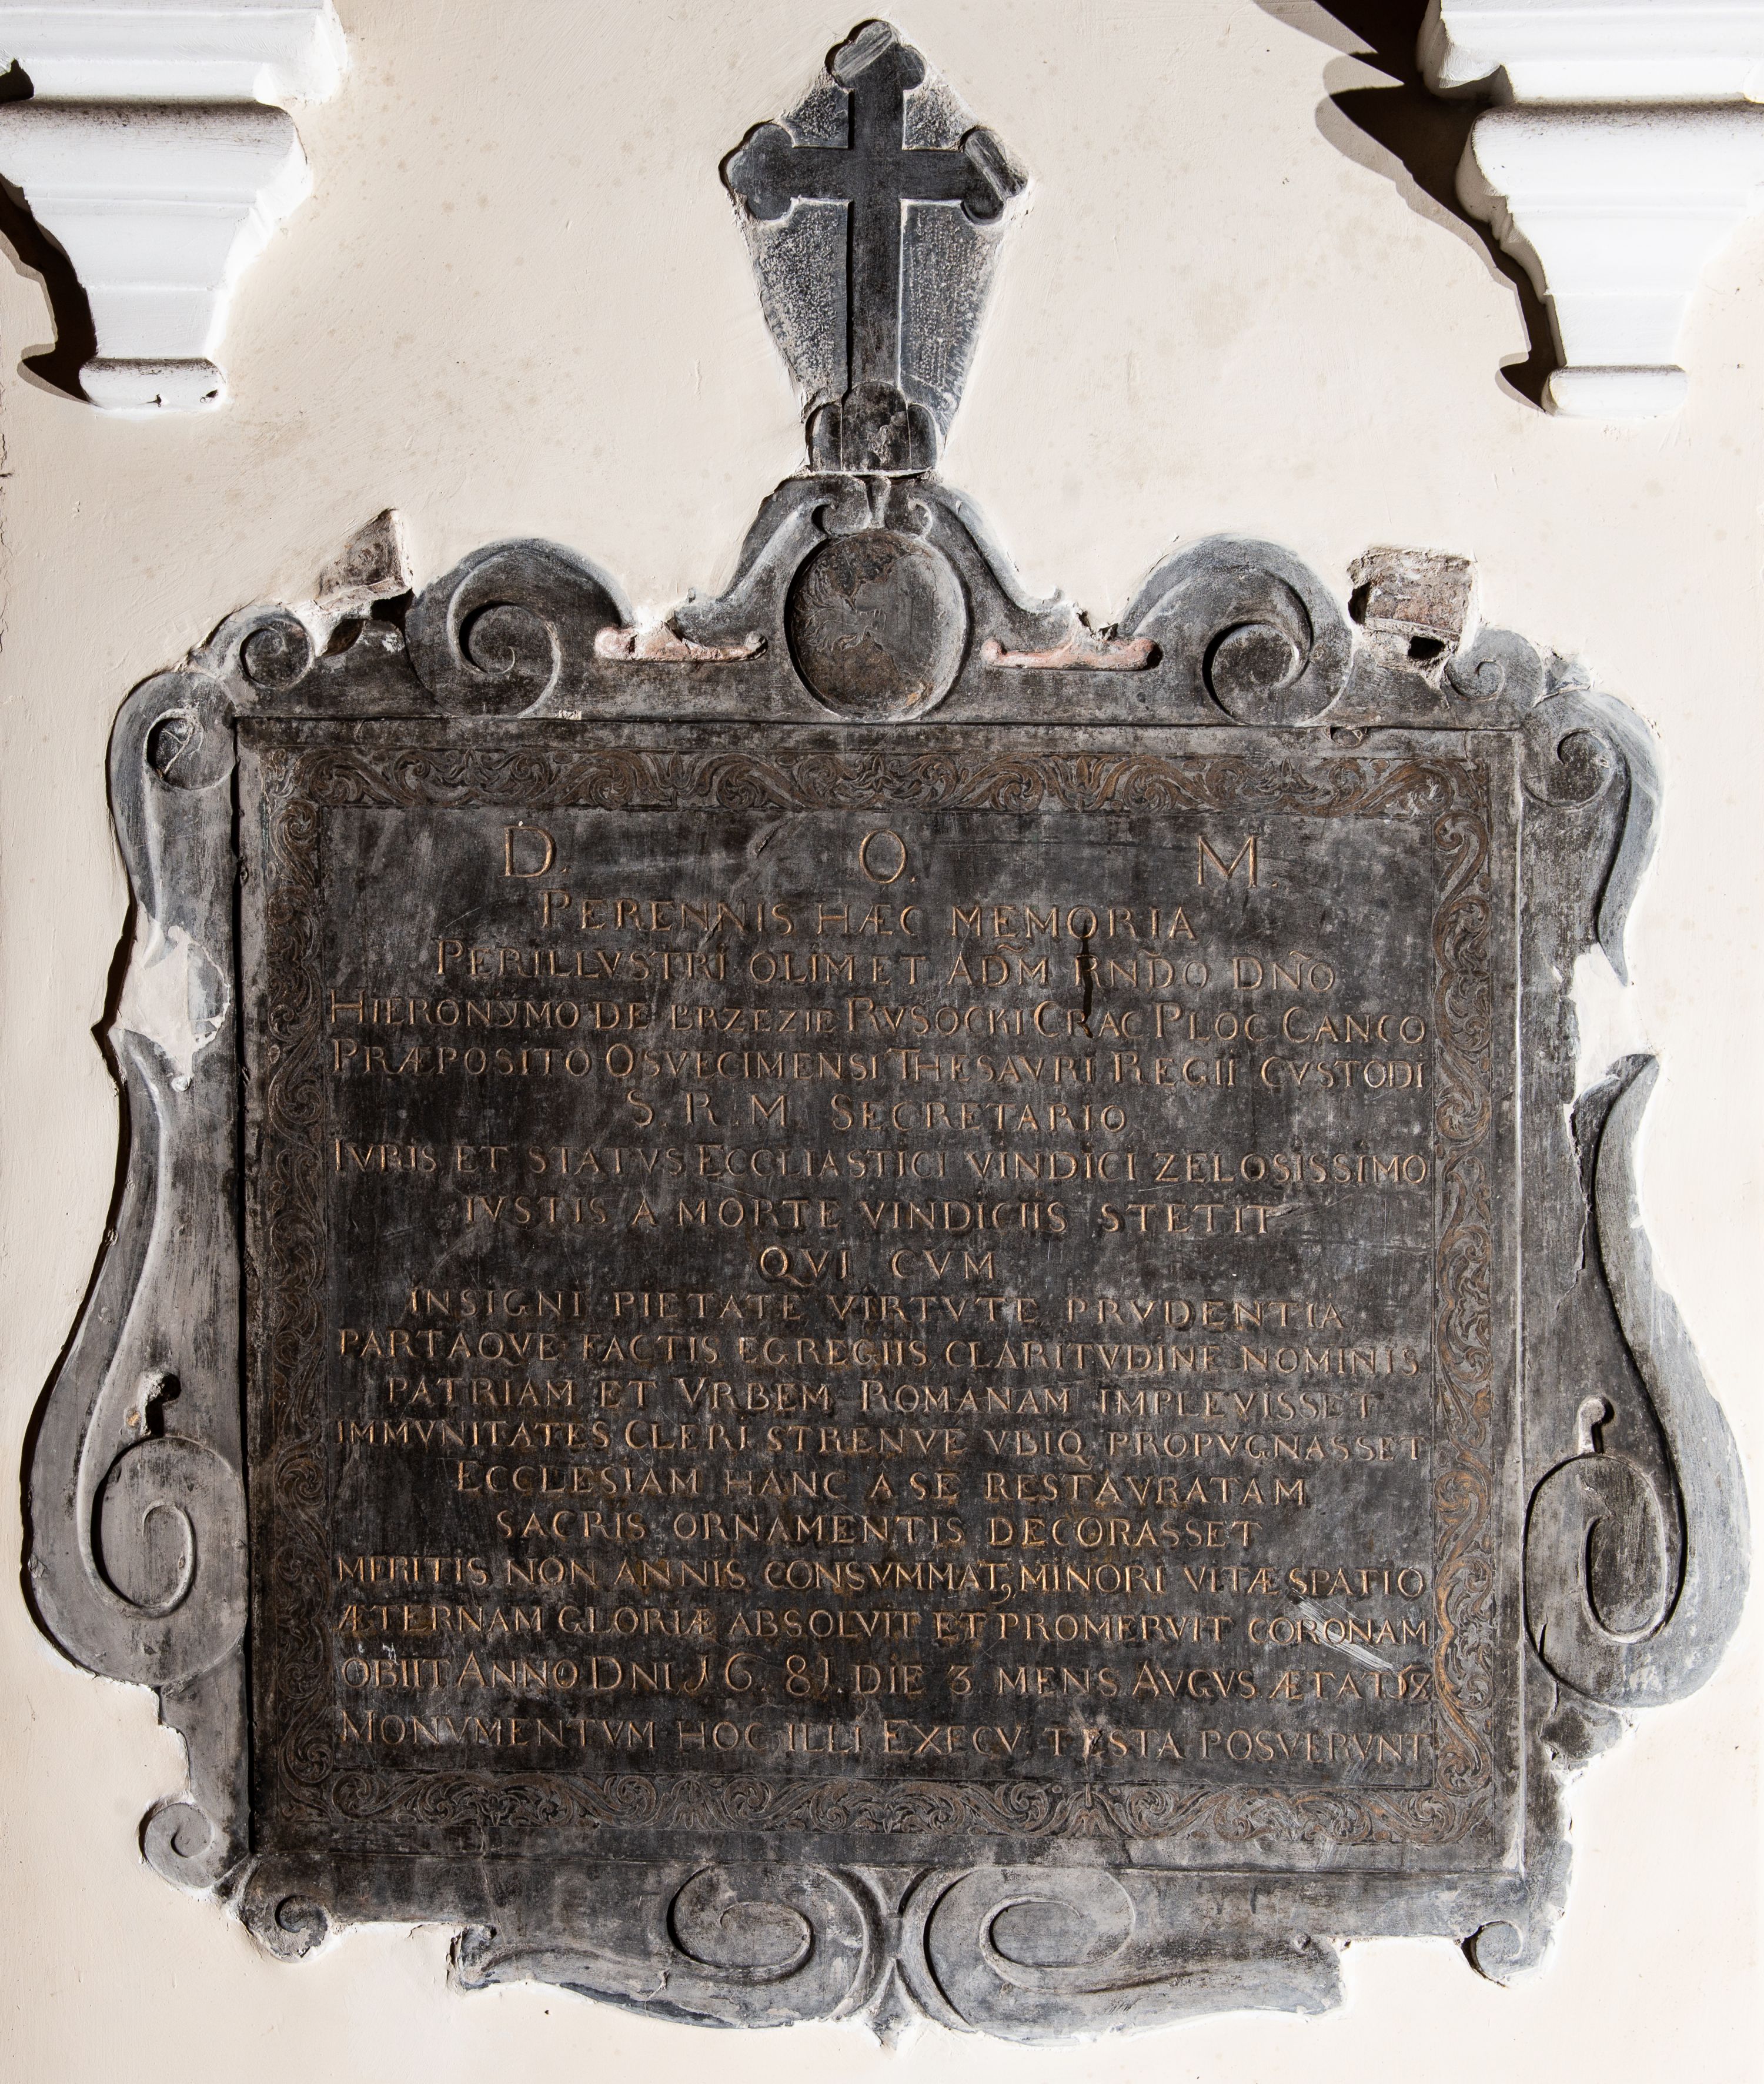 D. O. M.
PERENNIS HÆC MEMORIA
PERILLVSTRI OLIM ET ADM̃ RNDÕ DNÕ
HIERONYMO DE BRZEZIE RVSOCKI CRAC PLOC CANCO
PRÆPOSITO OSVECIMENSI THESAVRI REGII CVSTODI
S. R. M. SECRETARIO
IVRIS ET STATVS ECCLIASTICI VINDICI ZELOSISSIMO
IVSTIS A MORTE VINDICIIS STETIT
QVI CVM
INSIGNI PIETATE VIRTVTE PRVDENTIA
PARTAQVE FACTIS EGREGIIS CLARITVDINE NOMINIS
PATRIAM ET VRBEM ROMANAM IMPLEVISSET
IMMVNITATES CLERI STRENVE VBIQ PROPVGNASSET
ECCLESIAM HANC A SE RESTAVRATAM
SACRIS ORNAMENTIS DECORASSET
MERITIS NON ANNIS CONSVMMAT, MINORI VITÆ SPATIO
ÆTERNAM GLORIÆ ABSOLVIT ET PROMERVIT CORONAM
OBIIT ANNO DNI 16.81. DIE 3 MENS AVGVS ÆTATIS
MONVMENTVM HOC ILLI EXECV TESTA POSVERVNT